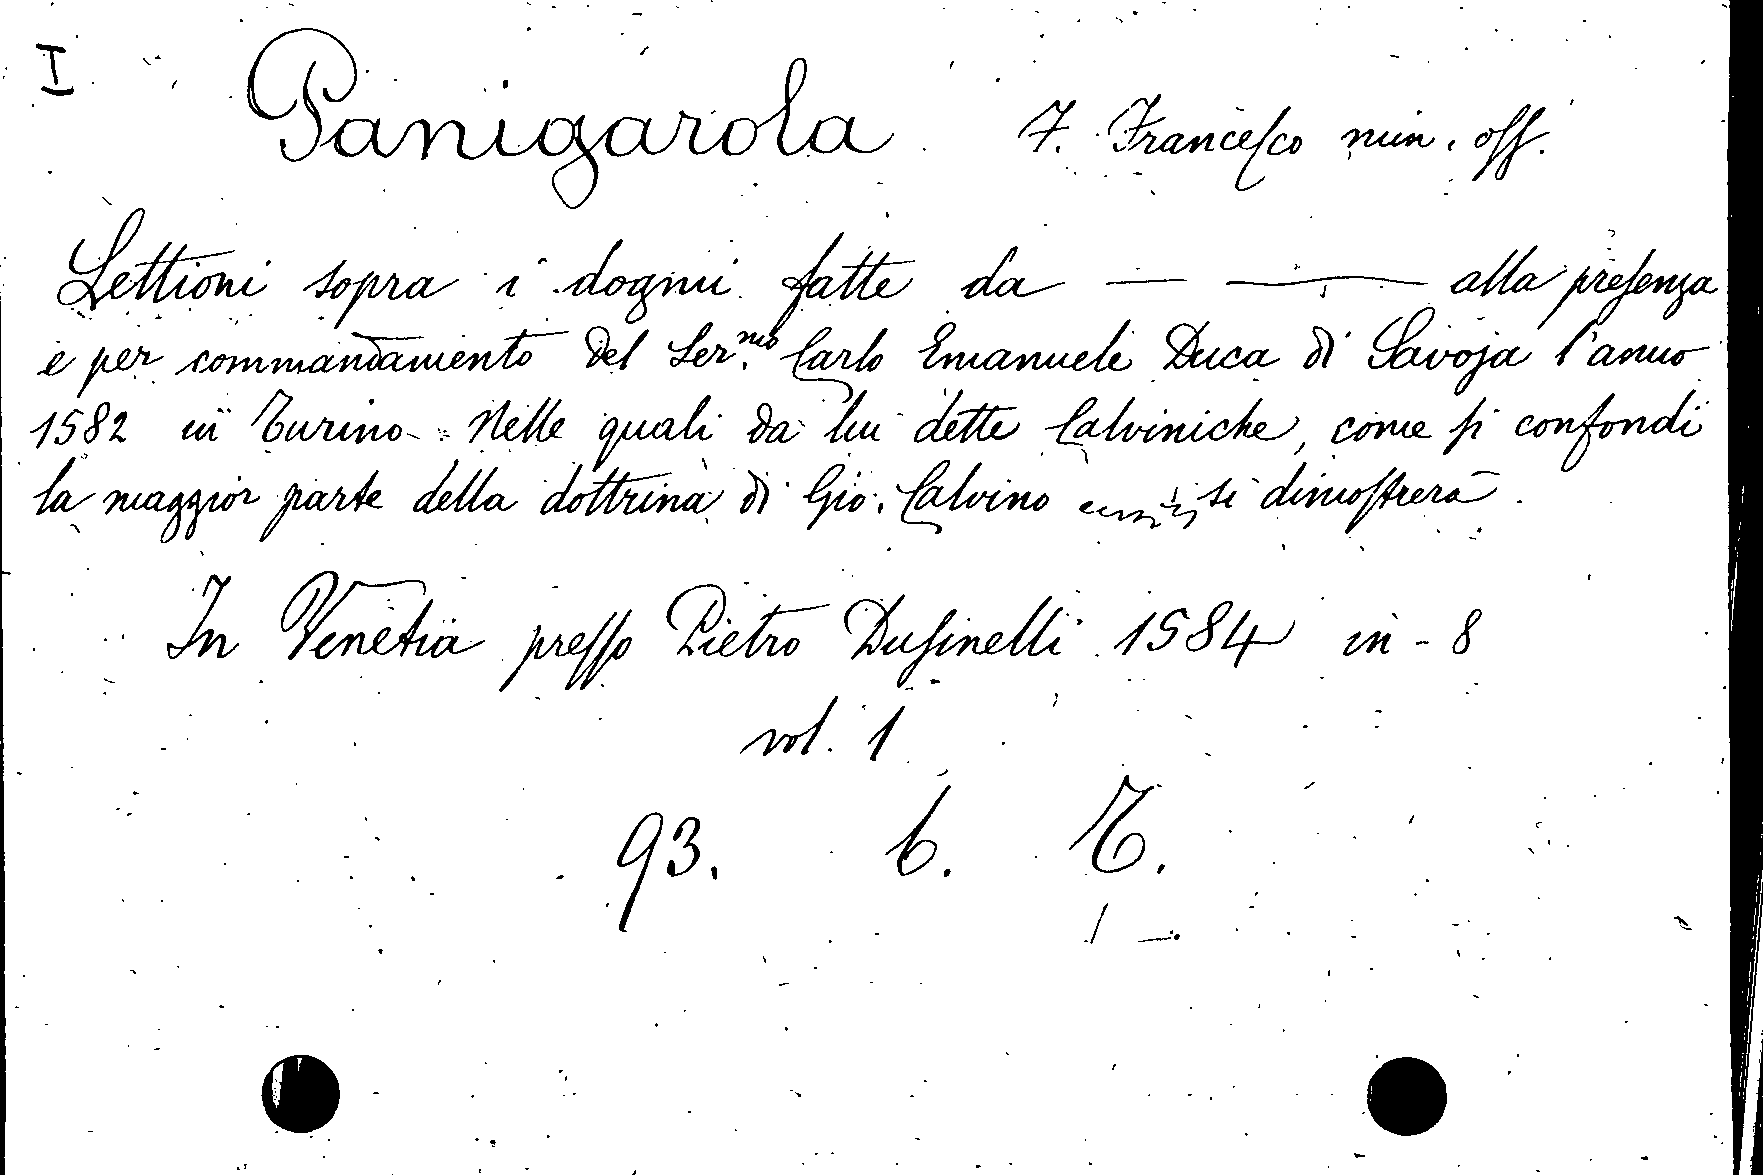 I
Panigarola F. Francesco min. off.
Lettioni sopra i dogmi fatte da — — alla presenza
e per commandamento del Ser.mo Carlo Emanuele Duca di Savoja l'anno
1582 in Turino. Nelle quali da lui dette Calviniche, come si confondi
la maggior parte della dottrina di Gio. Calvino si dimostrerà.
In Venetia presso Pietro Dusinelli 1584 in-8
vol. 1
93. 6. T.
1 —